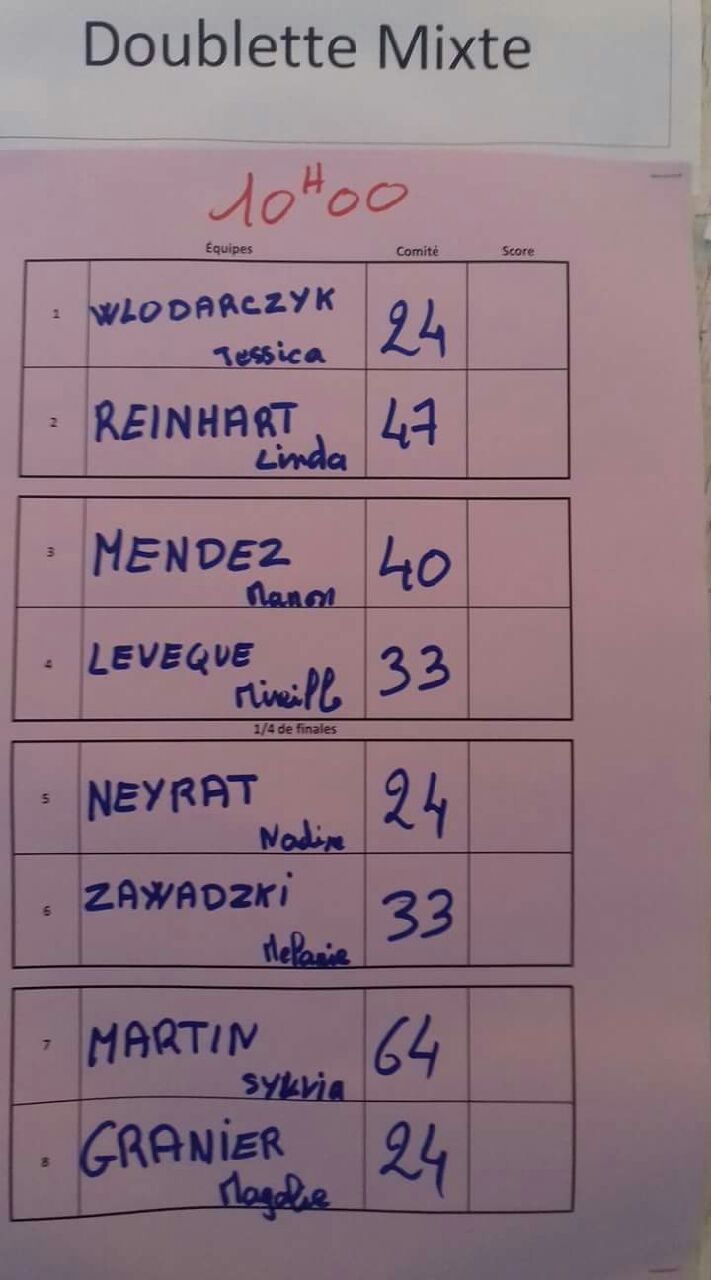 Doublette Mixte
10H00
Équipes Comité Score
1 WLODARCZYK 24
Jessica
2 REINHART 47
Linda
3 MENDEZ 40
Manon
4 LEVEQUE 33
Mireille
1/4 de finales
5 NEYRAT 24
Nadine
6 ZAWADZKI 33
Melanie
7 MARTIN 64
Sylvia
8 GRANIER 24
Magalie